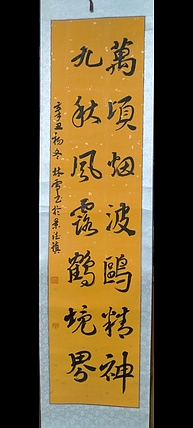 萬頃烟波鷗精神
九秋風露鶴境界
辛丑初冬林雪玉於景德鎮